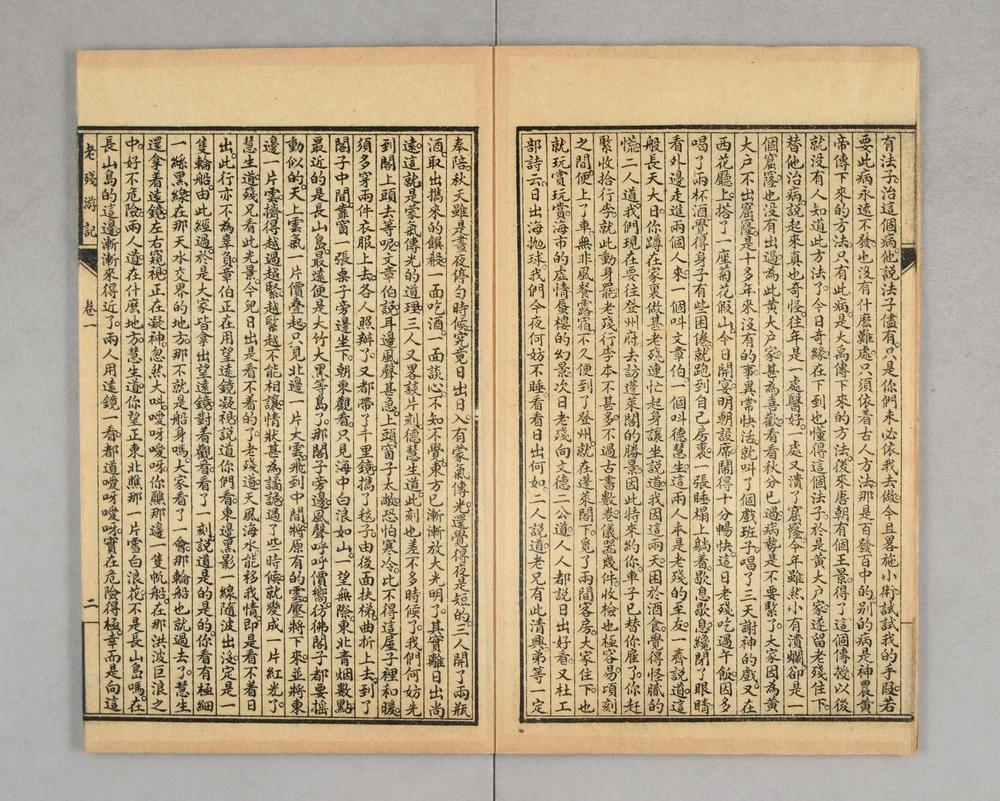 有法子治這個病他說法子儘有。只是你們未必依我去做。今且畧施小術試試我的手段。若
要此病永遠不發也沒有什麼難處。只須依着古人方法。那是百發百中的。別的病是神農黃
帝傳下來的方法。只有此病是大禹傳下來的方法。後來唐朝有個王景得了這個傳授。以後
就沒有人知道此方法了。今日奇緣在下到也懂得這個法子。於是黃大戶家遂留老殘住下。
替他治病。說起來真也奇怪。往年是一處醫好。一處又潰了窟窿。今年雖然小有潰爛。卻是一
個窟窿也沒有出過。為此黃大戶家甚為喜歡。看看秋分已過。病勢是不要緊了。大家因為黃
大戶不出窟窿。是十多年來沒有的事。異常快活。就叫了個戲班子唱了三天謝神的戲。又在
西花廳上。搭了一座菊花假山。今日開宴。明朝設席。鬧得十分暢快。這日老殘吃過午飯。因多
喝了兩杯酒。覺得身子有些困倦。就跑到自己房裏一張睡榻上躺着。歇息歇息。纔閉了眼睛
看外邊走進兩個人來。一個叫文章伯。一個叫德慧生。這兩人本是老殘的至友。一齊說道。這
般長天大日。你蹲在家裏做甚。老殘連忙起身讓坐。說道我因這兩天困於酒食。覺得怪膩的
慌。二人道我們現在要往登州府去。訪蓬萊閣的勝景。因此特來約你。車子已替你雇了。你赶
緊收拾行李。就此動身罷。老殘行李本不甚多。不過古書數卷。儀器幾件。收檢也極容易。頃刻
之間。便上了車。無非風餐露宿。不久便到了登州。就在蓬萊閣下。覓了兩間客房。大家住下。也
就玩賞玩賞海市的虛情。蜃樓的幻景。次日老殘向文德二公道。人人都說日出好看。又杜工
部詩云。日出海拋球。我們今夜何妨不睡。看看日出何如。二人說道。老兄有此清興。弟等一定
奉陪。秋天雖是晝夜停勻時候。究竟日出日入。有蒙氣傳光。還覺得夜是短的。三人開了兩瓶
酒。取出攜來的饌殽。一面吃酒。一面談心。不知不覺。東方已漸漸放大光明了。其實離日出尚
遠。這就是蒙氣傳光的道理。三人又畧談片刻。德慧生道。此刻也差不多時候了。我們何妨先
到閣上頭去等呢。文章伯說。耳邊風聲甚急。上頭窗子太敞。恐怕寒冷。比不得這屋子裡和暖。
須多穿兩件衣服上去。各人照辦了。又都帶了千里鏡。攜了毯子。由後面扶梯曲折上去。到了
閣子中間。靠窗一張桌子旁邊坐下。朝東觀看。只見海中白浪如山。一望無際。東北青烟數點。
最近的是長山島。最遠便是大竹大黑等島了。那閣子旁邊。風聲呼呼價嚮。彷彿閣子都要搖
動似的。天上雲氣一片價疊起。只見北邊一片大雲。飛到中間。將原有的雲壓將下來。並將東
邊一片雲擠得越過越緊。越緊越不能相讓。情狀甚為譎詭。過了些時候。就變成一片紅光了。
慧生道。殘兄看此光景。今兒日出是看不着的了。老殘道。天風海水。能移我情。即是看不着日
出。此行亦不為辜負。章伯正在用望遠鏡凝視。說道你們看。東邊黑影一線。隨波出沒。定是一
隻輪船由此經過。於是大家皆拿出望遠鏡對着觀看。看了一刻。說道是的是的。你看有極細
一絲黑線。在那天水交界的地方。那不就是船身嗎。大家看了一會。那輪船也就過去了。慧生
還拿着遠鏡。左右窺視。正在凝神。忽然大叫。噯呀噯呀。你瞧那邊一隻帆船。在那洪波巨浪之
中。好不危險。兩人道在什麼地方。慧生道你望正東北瞧。那一片雪白浪花。不是長山島嗎。在
長山島的這邊。漸漸來得近了。兩人用遠鏡一看。都道噯呀噯呀實在危險得極。幸而是向這
老殘游記
卷一
二